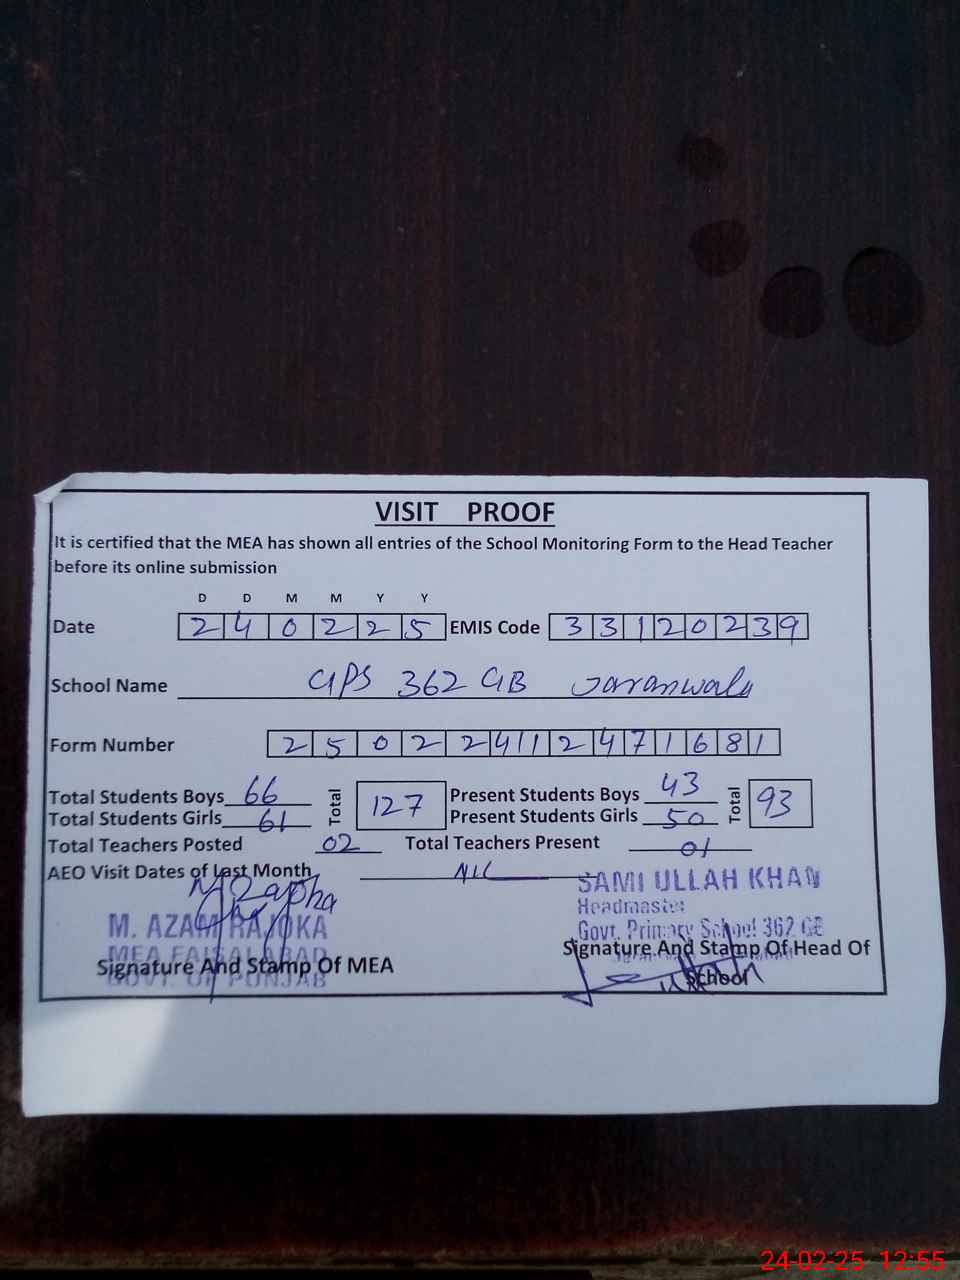 VISIT PROOF
It is certified that the MEA has shown all entries of the School Monitoring Form to the Head Teacher
before its online submission
D D M M Y Y
Date 2 4 0 2 2 5 EMIS Code 3 3 1 2 0 2 3 9
School Name GPS 362 GB Jaranwala
Form Number 2 5 0 2 2 4 1 2 4 7 1 6 8 1
Total Students Boys 66 Total 127 Present Students Boys 43 Total 93
Total Students Girls 61 Present Students Girls 50
Total Teachers Posted 02 Total Teachers Present 01
AEO Visit Dates of Last Month NIL
SAMI ULLAH KHAN
Headmaster
M. AZAM RAJOKA Govt. Primary School 362 GB
MEA FAISALABAD
Signature And Stamp Of MEA Signature And Stamp Of Head Of
GOVT. OF PUNJAB School
24-02-25 12:55